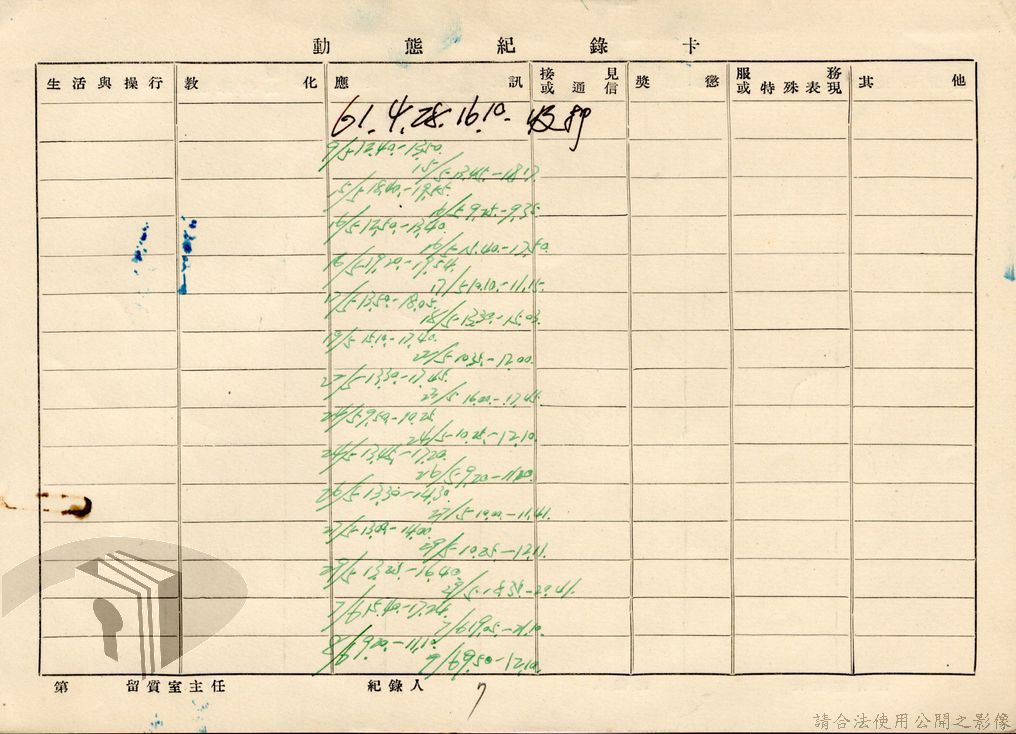 動態紀錄卡
生活與操行 教化 應訊 接見或通信 獎懲 服務或特殊表現 其他
61. 4. 28. 16.10. 收押
9/5-12.40.-13.50.
15/5-13.45.-18.17.
15/5-18.40.-19.55.
16/5-9.25.-9.35.
16/5-12.50.-13.40.
16/5-15.40.-17.50.
16/5-19.20.-19.54.
17/5-10.10.-11.15.
17/5-13.50.-18.05.
18/5-13.30.-15.03.
19/5-15.10.-17.40.
22/5-10.35.-12.00.
22/5-13.30.-17.45.
23/5-16.00.-17.45.
24/5-9.50.-10.25.
24/5-10.25.-12.10.
24/5-13.45.-17.20.
26/5-9.20.-11.20.
26/5-13.30.-14.30.
27/5-10.00.-11.41.
27/5-13.05.-14.00.
29/5-10.25.-12.11.
29/5-13.25.-16.40.
29/5-18.35.-20.41.
7/6 15.40.-17.24.
7/6 19.05.-21.10.
8/6 9.20.-11.10.
9/6 9.50-12.10.
第 留質室主任 紀錄人 7
請合法使用公開之影像